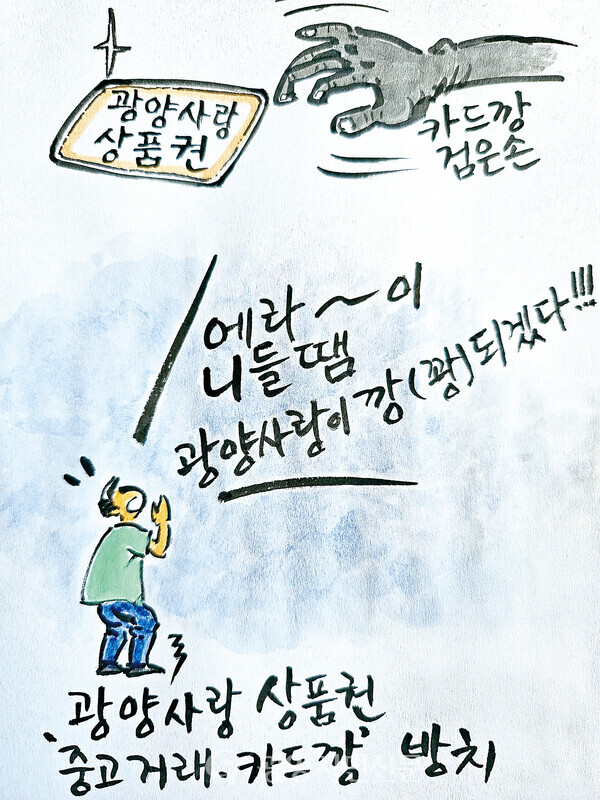 광양사랑
상품권
카드깡
검은손
에라~이
니들 땜
광양사랑이 깡(꽝)되겠다!!!
광양사랑 상품권
'중고거래·카드깡' 방치